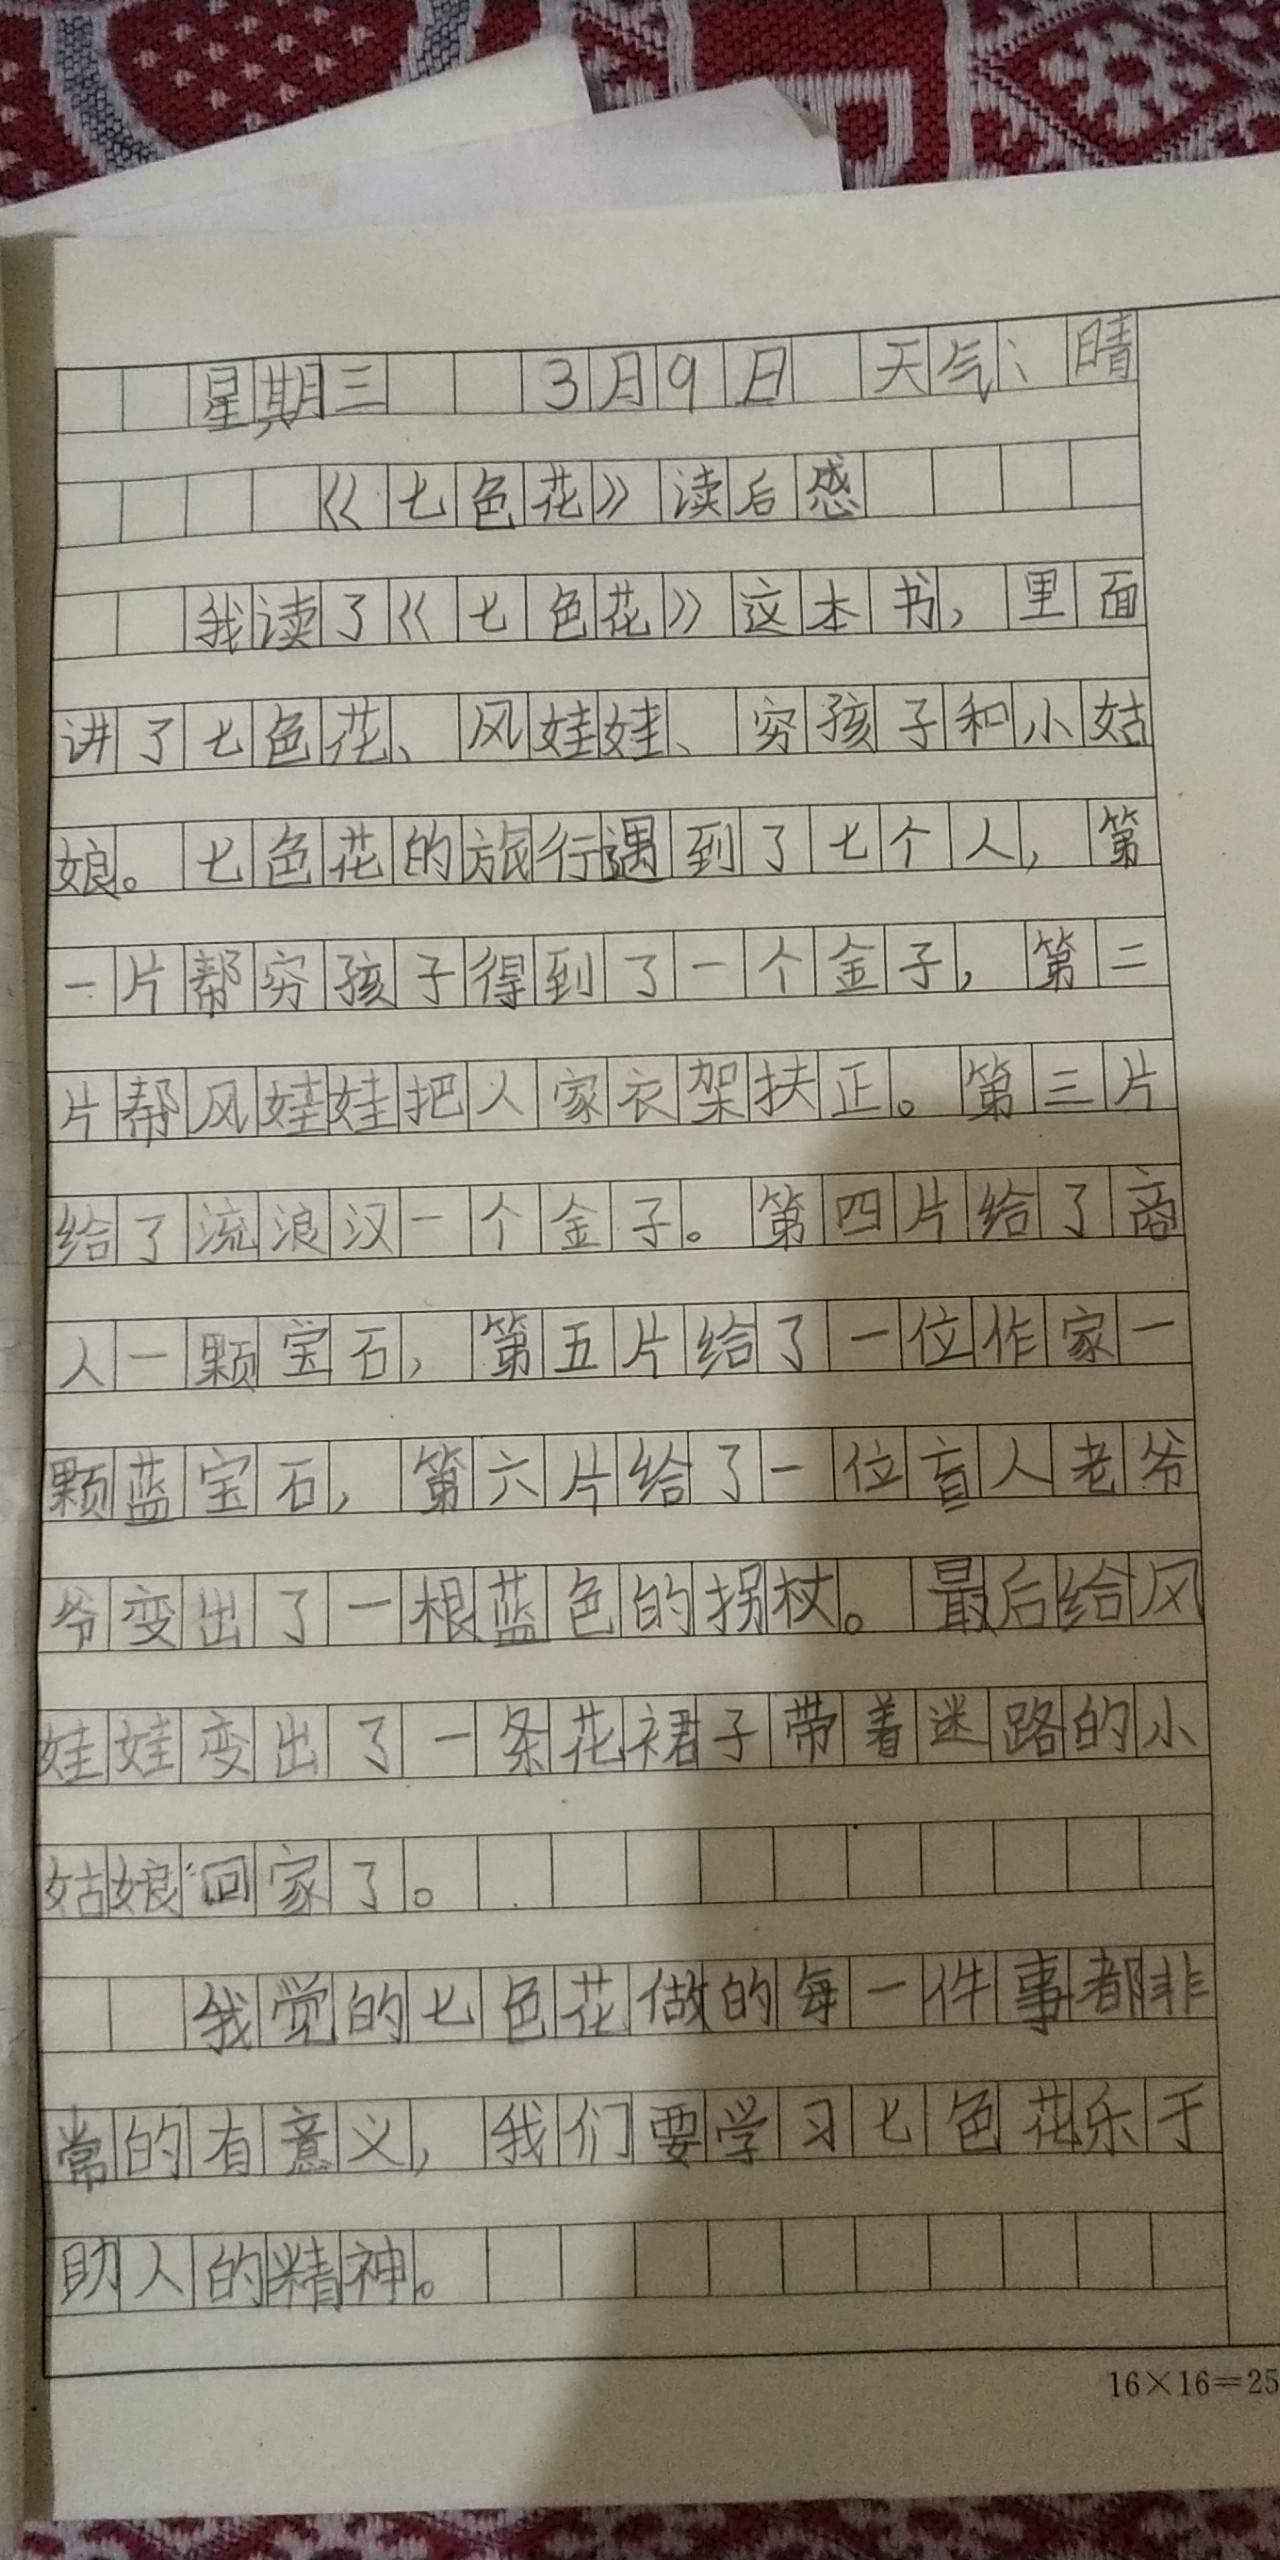 星期三 3月9日 天气：晴
《七色花》读后感
我读了《七色花》这本书，里面
讲了七色花、风娃娃、穷孩子和小姑
娘。七色花的旅行遇到了七个人，第
一片帮穷孩子得到了一个金子，第二
片帮风娃娃把人家衣架扶正。第三片
给了流浪汉一个金子。第四片给了商
人一颗宝石，第五片给了一位作家一
颗蓝宝石，第六片给了一位盲人老爷
爷变出了一根蓝色的拐杖。最后给风
娃娃变出了一条花裙子带着迷路的小
姑娘回家了。
我觉的七色花做的每一件事都非
常的有意义，我们要学习七色花乐于
助人的精神。
16×16=25